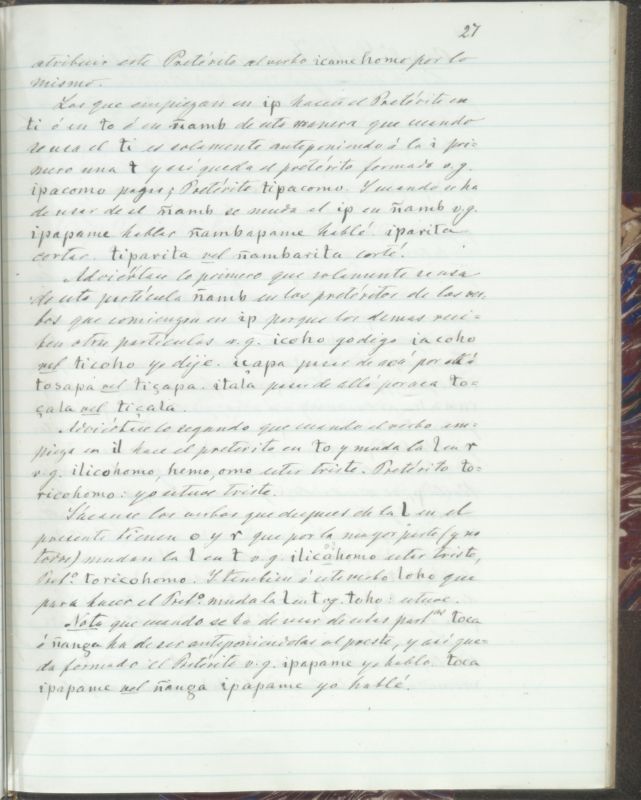 27
atribuir este Pretérito al verbo icamehomo por lo
mismo.
Los que empiezan en ip hacen el Pretérito en
ti ó en to ó en ñamb de esta manera que cuando
se usa el ti es solamente anteponiendo á la i pri-
mero una t y asi queda el pretérito formado v.g.
ipacomo pagar; Pretérito tipacomo. Y cuando se ha
de usar de el ñamb se muda el ip en ñamb v.g.
ipapame hablar ñambapame hablé. iparita
cortar. tiparita vel ñambarita corté.
Adviértase lo primero que solamente se usa
de esta partícula ñamb en los pretéritos de los ver-
bos que comienzan en ip porque los demas reci-
ben otras partículas v.g. icoho yo digo iacoho
vel ticoho yo dije. içapa pasar de acá por allá
tosapa vel tiçapa. itala pasar de alla por aca to-
çala vel tiçala.
Adviértase lo segundo que cuando el verbo em-
pieza en il hace el preterito en to y muda la l en r
v.g. ilicohomo, hemo, omo estar triste. Pretérito to-
ricohomo: yo estuve triste.
Sácanse los verbos que despues de la l en el
presente tienen o y r que por la mayor parte (y no
todos) mudan la l en t v.g. ilicahomo estar triste,
Pret.º toricohomo. Y tambien á este verbo loho que
para hacer el Pret.º muda la l en t v.g. toho: estuve.
Nota que cuando se ha de usar de estas part.ᵃˢ toca
ó ñanga ha de ser anteponiendolas al preste, y asi que-
da formado el Pretérito v.g. ipapame yo hablo. toca
ipapame vel ñanga ipapame yo hablé.